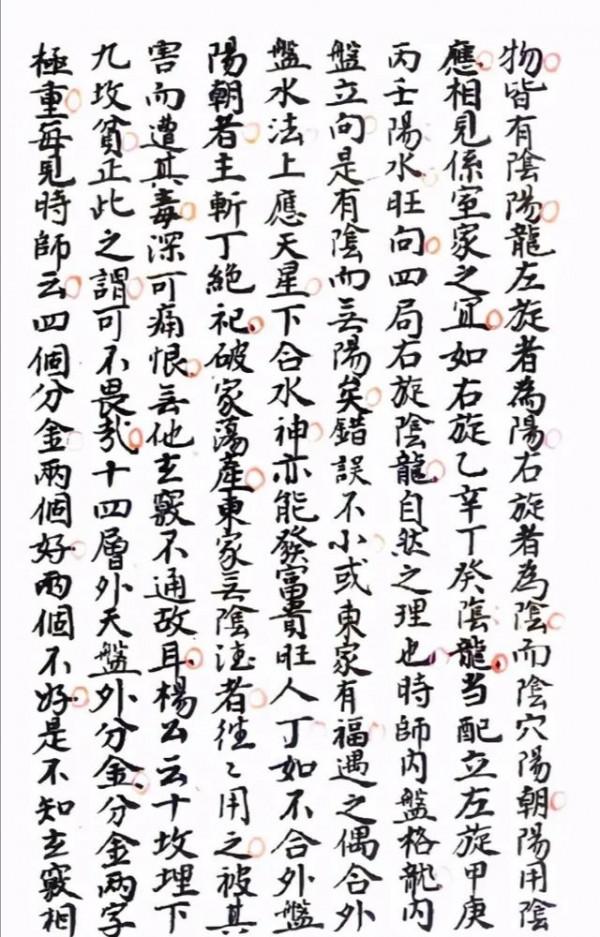 物皆有陰陽龍左旋者為陽右旋者為陰而陰穴陽朝陽用陰
應相見係室家之宜如右旋乙辛丁癸陰龍当配立左旋甲庚
丙壬陽水旺向四局右旋陰龍自然之理也時師内盤格龍内
盤立向是有陰而無陽矣錯誤不小或東家有福遇之偶合外
盤水法上應天星下合水神亦能發富貴旺人丁如不合外盤
陽朝者主斬丁絕祀破家蕩產東家無陰德者往々用之被其
害而遭其毒深可痛恨無他玄竅不通故耳楊公云十坟埋下
九坟貧正此之謂可不畏哉十四層外天盤外分金分金兩字
極重每見時師云四個分金兩個好兩個不好是不知玄竅相